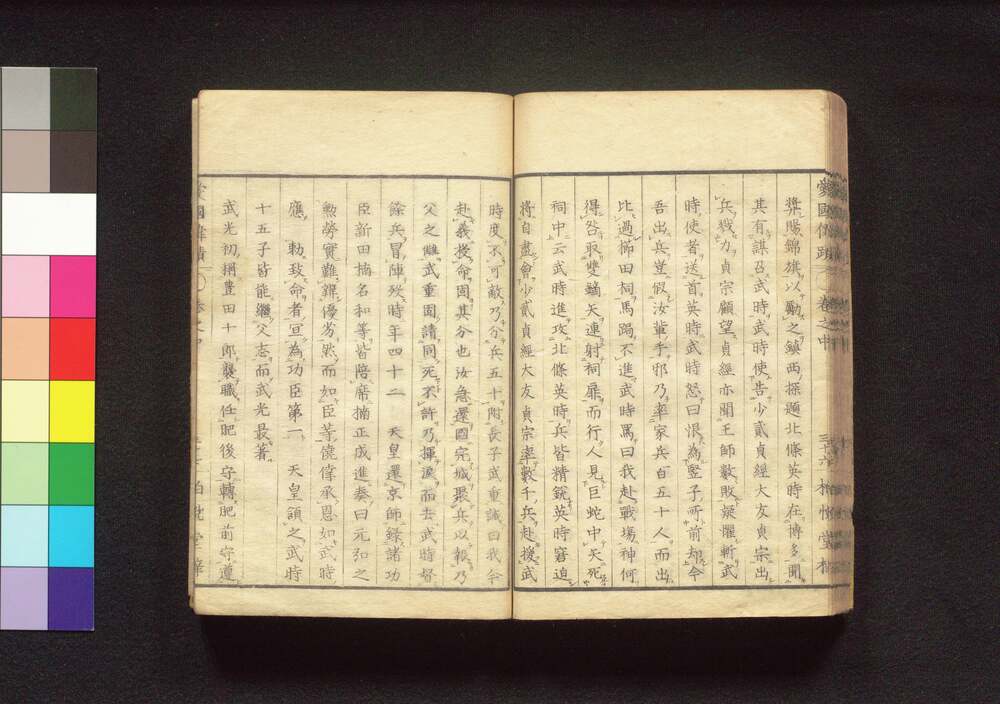 愛國偉蹟 卷之中 三十六 柏悅堂梓
奬賜錦旗以勵之鎮西探題北條英時在博多聞
其有謀召武時武時使告少貳貞經大友貞宗出
兵戮力貞宗顧望貞經亦聞王師數敗疑懼斬武
時使者送首英時武時怒曰恨為豎子所前却今
吾出兵豈假汝輩手邪乃率家兵百五十人而出
比過櫛田祠馬跼不進武時罵曰我赴戰場神何
得咎取雙鏑矢連射祠扉而行人見巨蛇中矢死
祠中云武時進攻北條英時兵皆精銳英時窘迫
將自盡會少貳貞經大友貞宗率數千兵赴援武
時度不可敵乃分兵五十附長子武重誡曰我今
赴義授命固其分也汝急還國完城聚兵以報乃
父之讎武重固請同死不許乃揮淚而去武時督
餘兵冒陣歿時年四十二 天皇還京師錄諸功
臣新田楠名和等皆陪席楠正成進奏曰元弘之
勲勞實難得優劣然而如臣等僥倖承恩如武時
應 勅致命者宜為功臣第一 天皇頷之武時
十五子皆能繼父志而武光最著
武光初稱豊田十郎襲職任肥後守轉肥前守遵
愛國偉蹟 卷之中